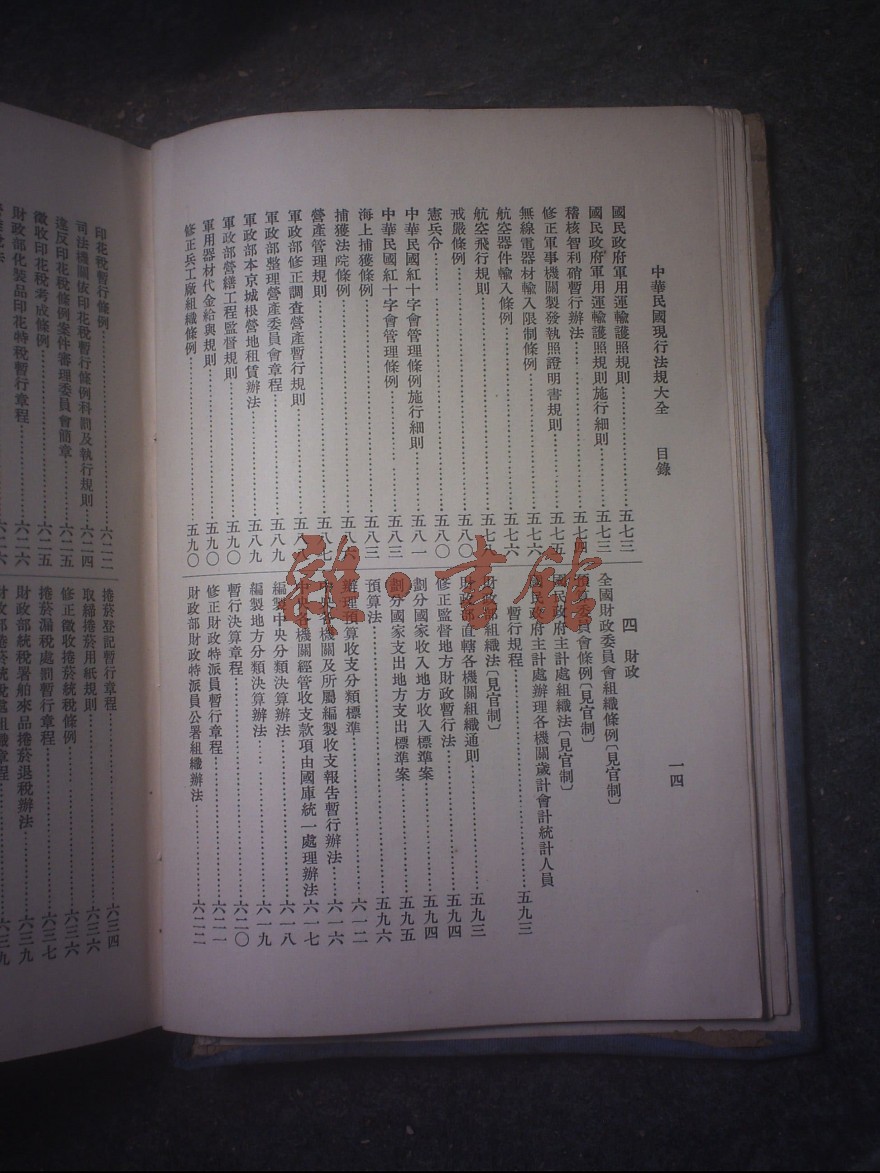 中華民國現行法規大全　目錄
一四
國民政府軍用運輸護照規則……五七三
國民政府軍用運輸護照規則施行細則……五七三
稽核智利硝暫行辦法……五七四
修正軍事機關製發執照證明書規則……五七五
無線電器材輸入限制條例……五七六
航空器件輸入條例……五七六
航空飛行規則……五七八
戒嚴條例……五八〇
憲兵令……五八〇
中華民國紅十字會管理條例施行細則……五八一
中華民國紅十字會管理條例……五八三
海上捕獲條例……五八三
捕獲法院條例……五八六
營產管理規則……五八七
軍政部修正調查營產暫行規則……五八八
軍政部整理營產委員會章程……五八九
軍政部本京城根營地租賃辦法……五八九
軍政部營繕工程監督規則……五九〇
軍用器材代金給與規則……五九〇
修正兵工廠組織條例……五九〇
四　財政
全國財政委員會組織條例〔見官制〕
預算委員會條例〔見官制〕
國民政府主計處組織法〔見官制〕
國民政府主計處辦理各機關歲計會計統計人員
暫行規程……五九三
財政部組織法〔見官制〕
財政部直轄各機關組織通則……五九三
修正監督地方財政暫行法……五九四
劃分國家收入地方收入標準案……五九四
劃分國家支出地方支出標準案……五九五
預算法……五九六
辦理預算收支分類標準……六一二
中央各機關及所屬編製收支報告暫行辦法……六一六
中央各機關經管收支款項由國庫統一處理辦法……六一七
編製中央分類決算辦法……六一八
編製地方分類決算辦法……六一九
暫行決算章程……六二〇
修正財政特派員暫行章程……六二一
財政部財政特派員公署組織辦法……六二二
印花稅暫行條例……六二二
司法機關依印花稅暫行條例科罰及執行規則……六二四
違反印花稅條例案件審理委員會簡章……六二五
徵收印花稅考成條例……六二五
財政部化裝品印花特稅暫行章程……六二六
捲菸登記暫行章程……六三四
取締捲菸用紙規則……六三六
修正徵收捲菸統稅條例……六三六
捲菸漏稅處罰暫行章程……六三七
財政部統稅署舶來品捲菸退稅辦法……六三九
財政部捲菸統稅處組織章程……六三九
雜·書館